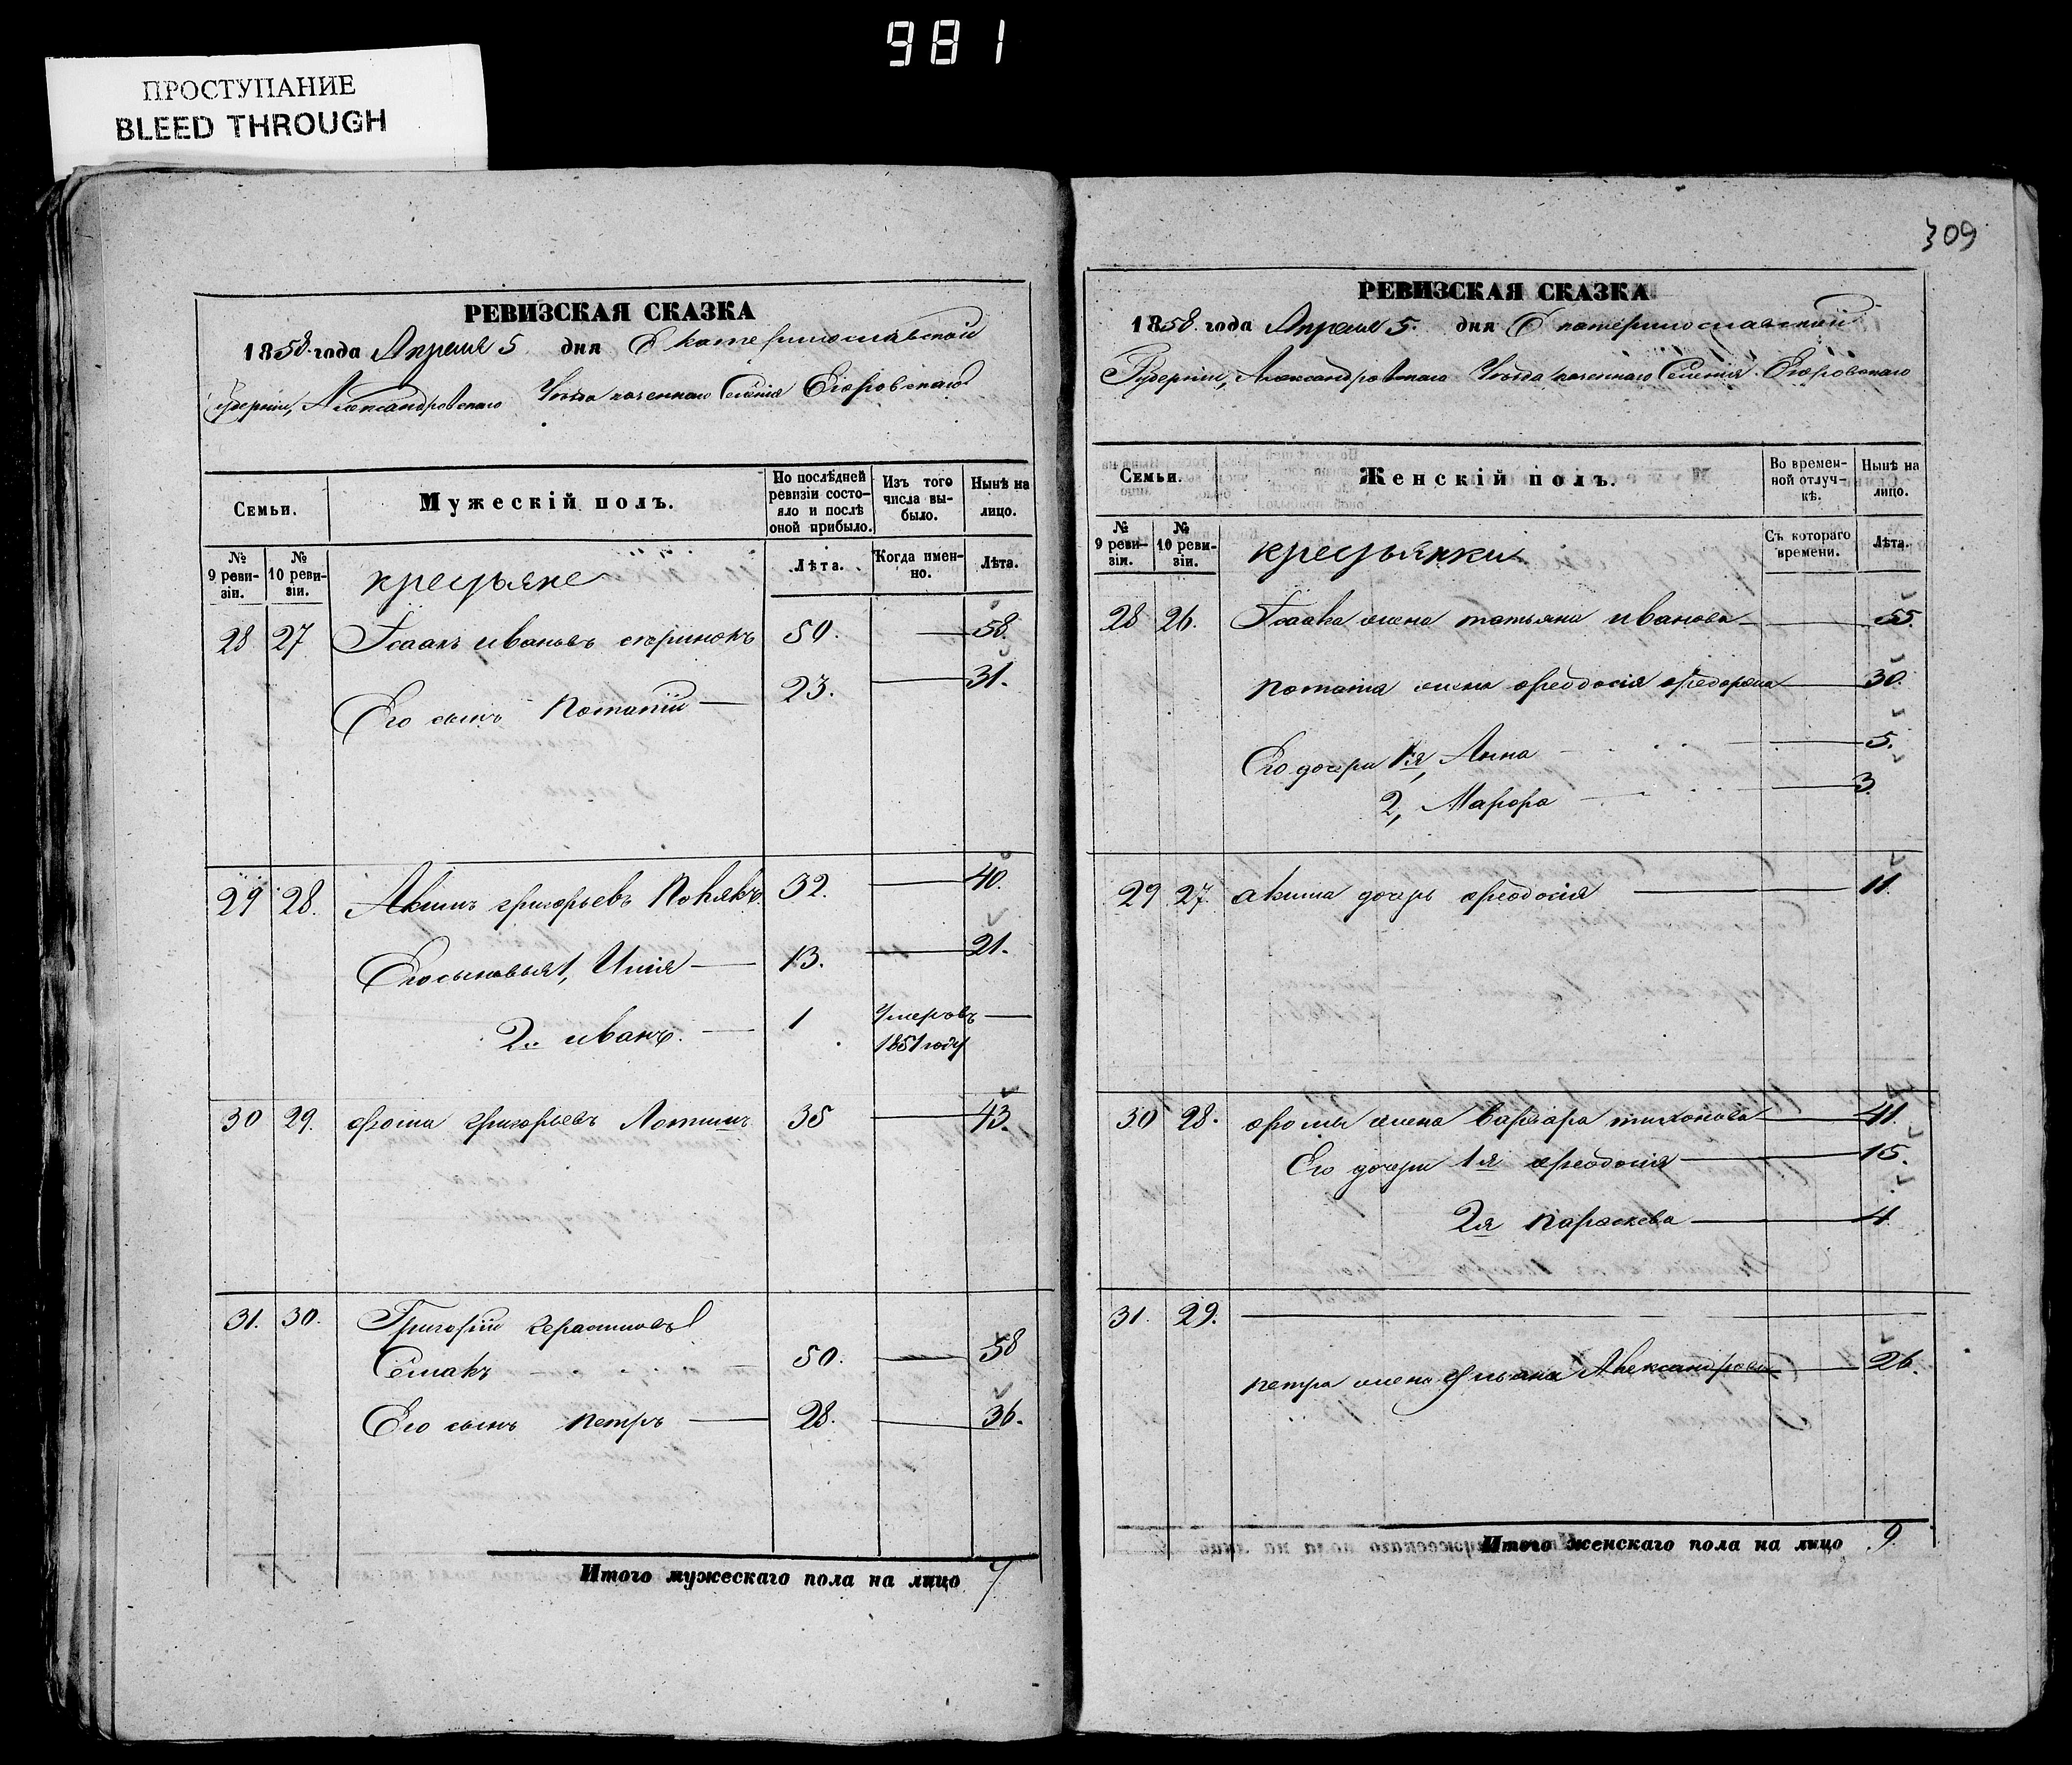 981
ПРОСТУПАНИЕ
BLEED THROUGH
РЕВИЗСКАЯ СКАЗКА
1858 года Апреля 5 дня Екатеринославской
Губернiи, Александровского Уезда казенного Селенiя Егоровского
Семьи.
Мужескiй полъ.
По послѣдней ревизiи состояло и послѣ оной прибыло.
Изъ того числа выбыло.
Нынѣ на лицо.
№ 9 ревизiи.
№ 10 ревизiи.
крестьяне
Лѣта.
Когда именно.
Лѣта.
28 27 Исаакъ ивановъ 50. 58.
Его сынъ Потапiй 23. 31.
29 28. Акимъ григорьевъ 32. 40.
Его сыновья 1, Илiя 13. 21.
2. иванъ. 1 Умеръ въ
1851 году
30 29. фома Григорьевъ 35 43.
31. 30. Григорiй Герасимовъ
Семакъ 50. 58
Его сынъ петръ 28. 36.
Итого мужескаго пола на лицо 7
309
РЕВИЗСКАЯ СКАЗКА
1858 года Апреля 5. дня Екатеринославской
Губернiи, Александровского Уезда казенного Селенiя Егоровского
Семьи.
Женскiй полъ.
Во временной отлучкѣ.
Нынѣ на лицо.
№ 9 ревизiи.
№ 10 ревизiи.
крестьянки
Съ котораго времени.
Лѣта.
28 26. Исаака жена татьяна иванова 55.
Потапа жена феодосiя федорова 30.
Его дочери 1я, Анна 5.
2, Марфа 3.
29 27. акима дочерь феодосiя 11.
30 28. фомы жена варвара тихонова 41.
Его дочери 1я феодосiя 15.
2я параскева 4
31. 29.
петра жена Ульяна Александрова 26.
Итого женскаго пола на лицо 9.